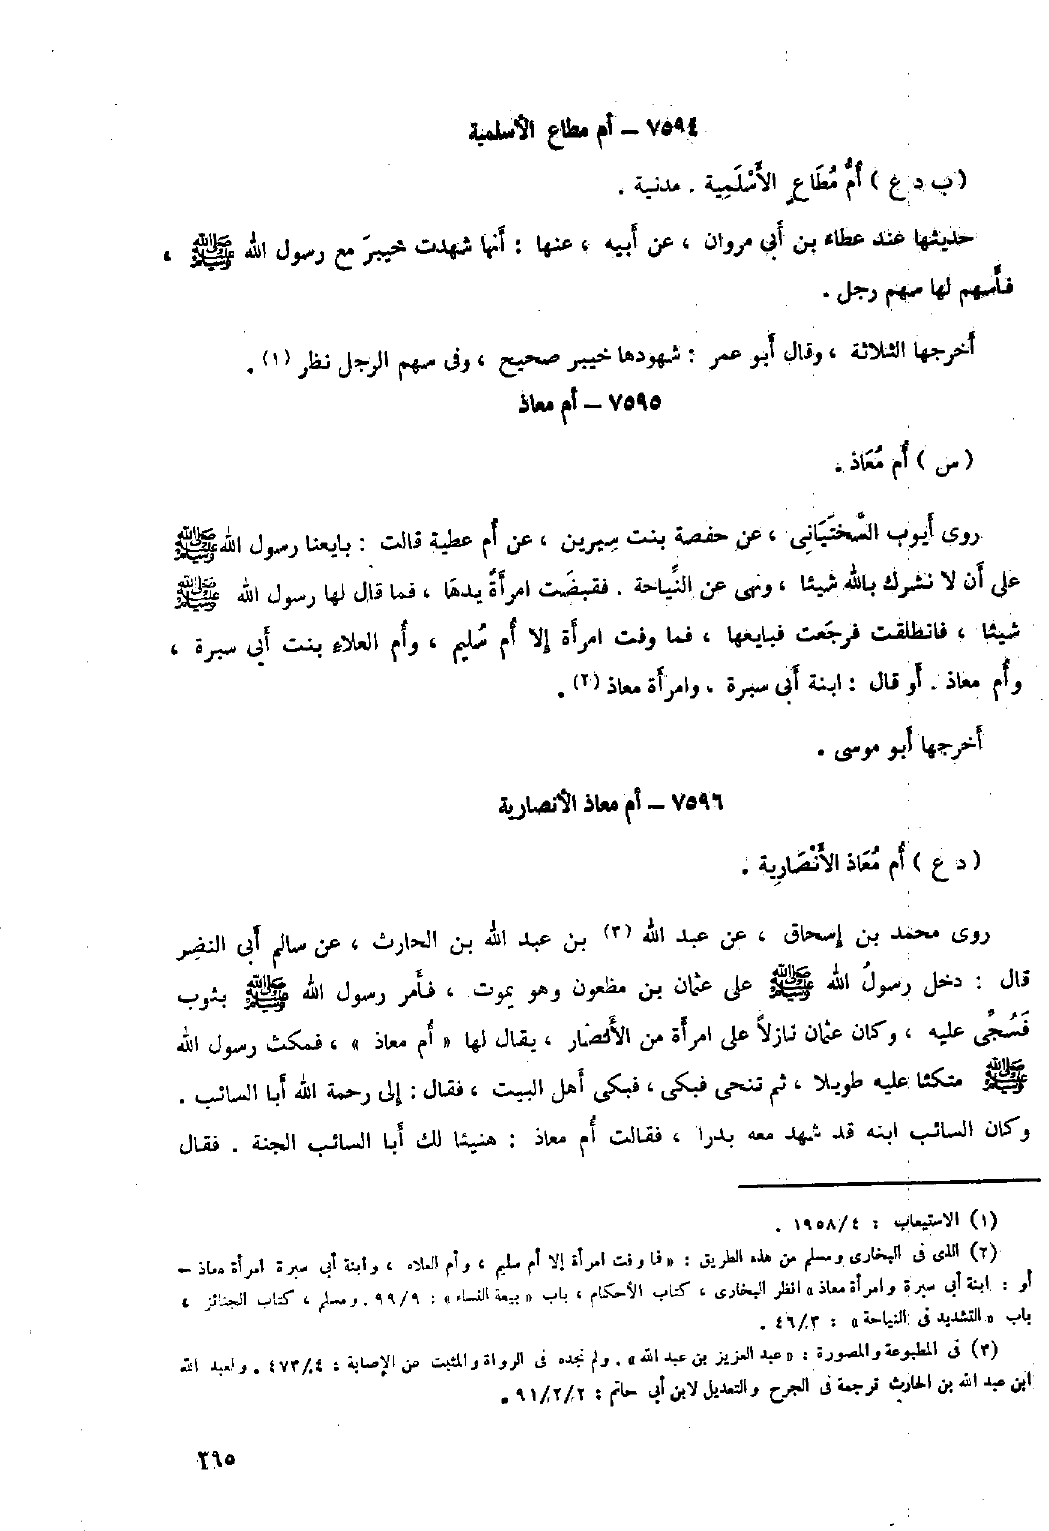 ٧٥٩٤ – أم مطاع الأسلمية
( ب د ع ) أمُّ مُطَاعٍ الأَسْلَمِية . مدنية .
حديثها عند عطاء بن أبي مروان ، عن أبيه ، عنها : أنها شهدت خيبرَ مع رسول الله ﷺ ،
فأسهم لها سهم رجل .
أخرجها الثلاثة ، وقال أبو عمر : شهودها خيبر صحيح ، وفى سهم الرجل نظر (١) .
٧٥٩٥ – أم معاذ
( س ) أم مُعَاذ .
روى أيوب السَّختَيَانِى ، عن حفصة بنت سِيرين ، عن أم عطية قالت : بايعنا رسول الله ﷺ
على أن لا نشرك بالله شيئا ، ونهى عن النِّياحة . فقبضَت امرأةٌ يدهَا ، فما قال لها رسول الله ﷺ
شيئا ، فانطلقت فرجَعت فبايعها ، فما وفت امرأة إلا أم سُليم ، وأم العلاءِ بنت أبي سبرة ،
وأم معاذ . أو قال : ابنة أبى سبرة ، وامرأة معاذ (٢) .
أخرجها أبو موسى .
٧٥٩٦ – أم معاذ الأنصارية
( د ع ) أم مُعَاذ الأَنْصَارِية .
روى محمد بن إسحاق ، عن عبد الله (٣) بن عبد الله بن الحارث ، عن سالم أبى النضر
قال : دخل رسولُ الله ﷺ على عثمان بن مظعون وهو يموت ، فأمر رسول الله ﷺ بثوب
فَسُجِّى عليه ، وكان عثمان نازلاً على امرأة من الأَنصار ، يقال لها « أم معاذ » ، فمكث رسول الله
ﷺ متكئا عليه طويلا ، ثم تنحى فبكى ، فبكى أهل البيت ، فقال : إلى رحمة الله أبا السائب .
وكان السائب ابنه قد شهد معه بدرا ، فقالت أم معاذ : هنيئا لك أبا السائب الجنة . فقال
(١) الاستيعاب : ١٩٥٨/٤ .
(٢) الذى فى البخارى ومسلم من هذه الطريق : « فما وفت امرأة إلا أم سليم ، وأم العلاء ، وابنة أبى سبرة امرأة معاذ –
أو : ابنة أبى سبرة وامرأة معاذ » انظر البخارى ، كتاب الأحكام ، باب « بيعة النساء » : ٩٩/٩ . ومسلم ، كتاب الجنائز ،
باب « التشديد فى النياحة » : ٤٦/٣ .
(٣) فى المطبوعة والمصورة : « عبد العزيز بن عبد الله » . ولم نجده فى الرواة والمثبت عن الإصابة : ٤٧٣/٤ . ولعبد الله
ابن عبد الله بن الحارث ترجمة فى الجرح والتعديل لابن أبي حاتم : ٩١/٢/٢ .
٣٦٥